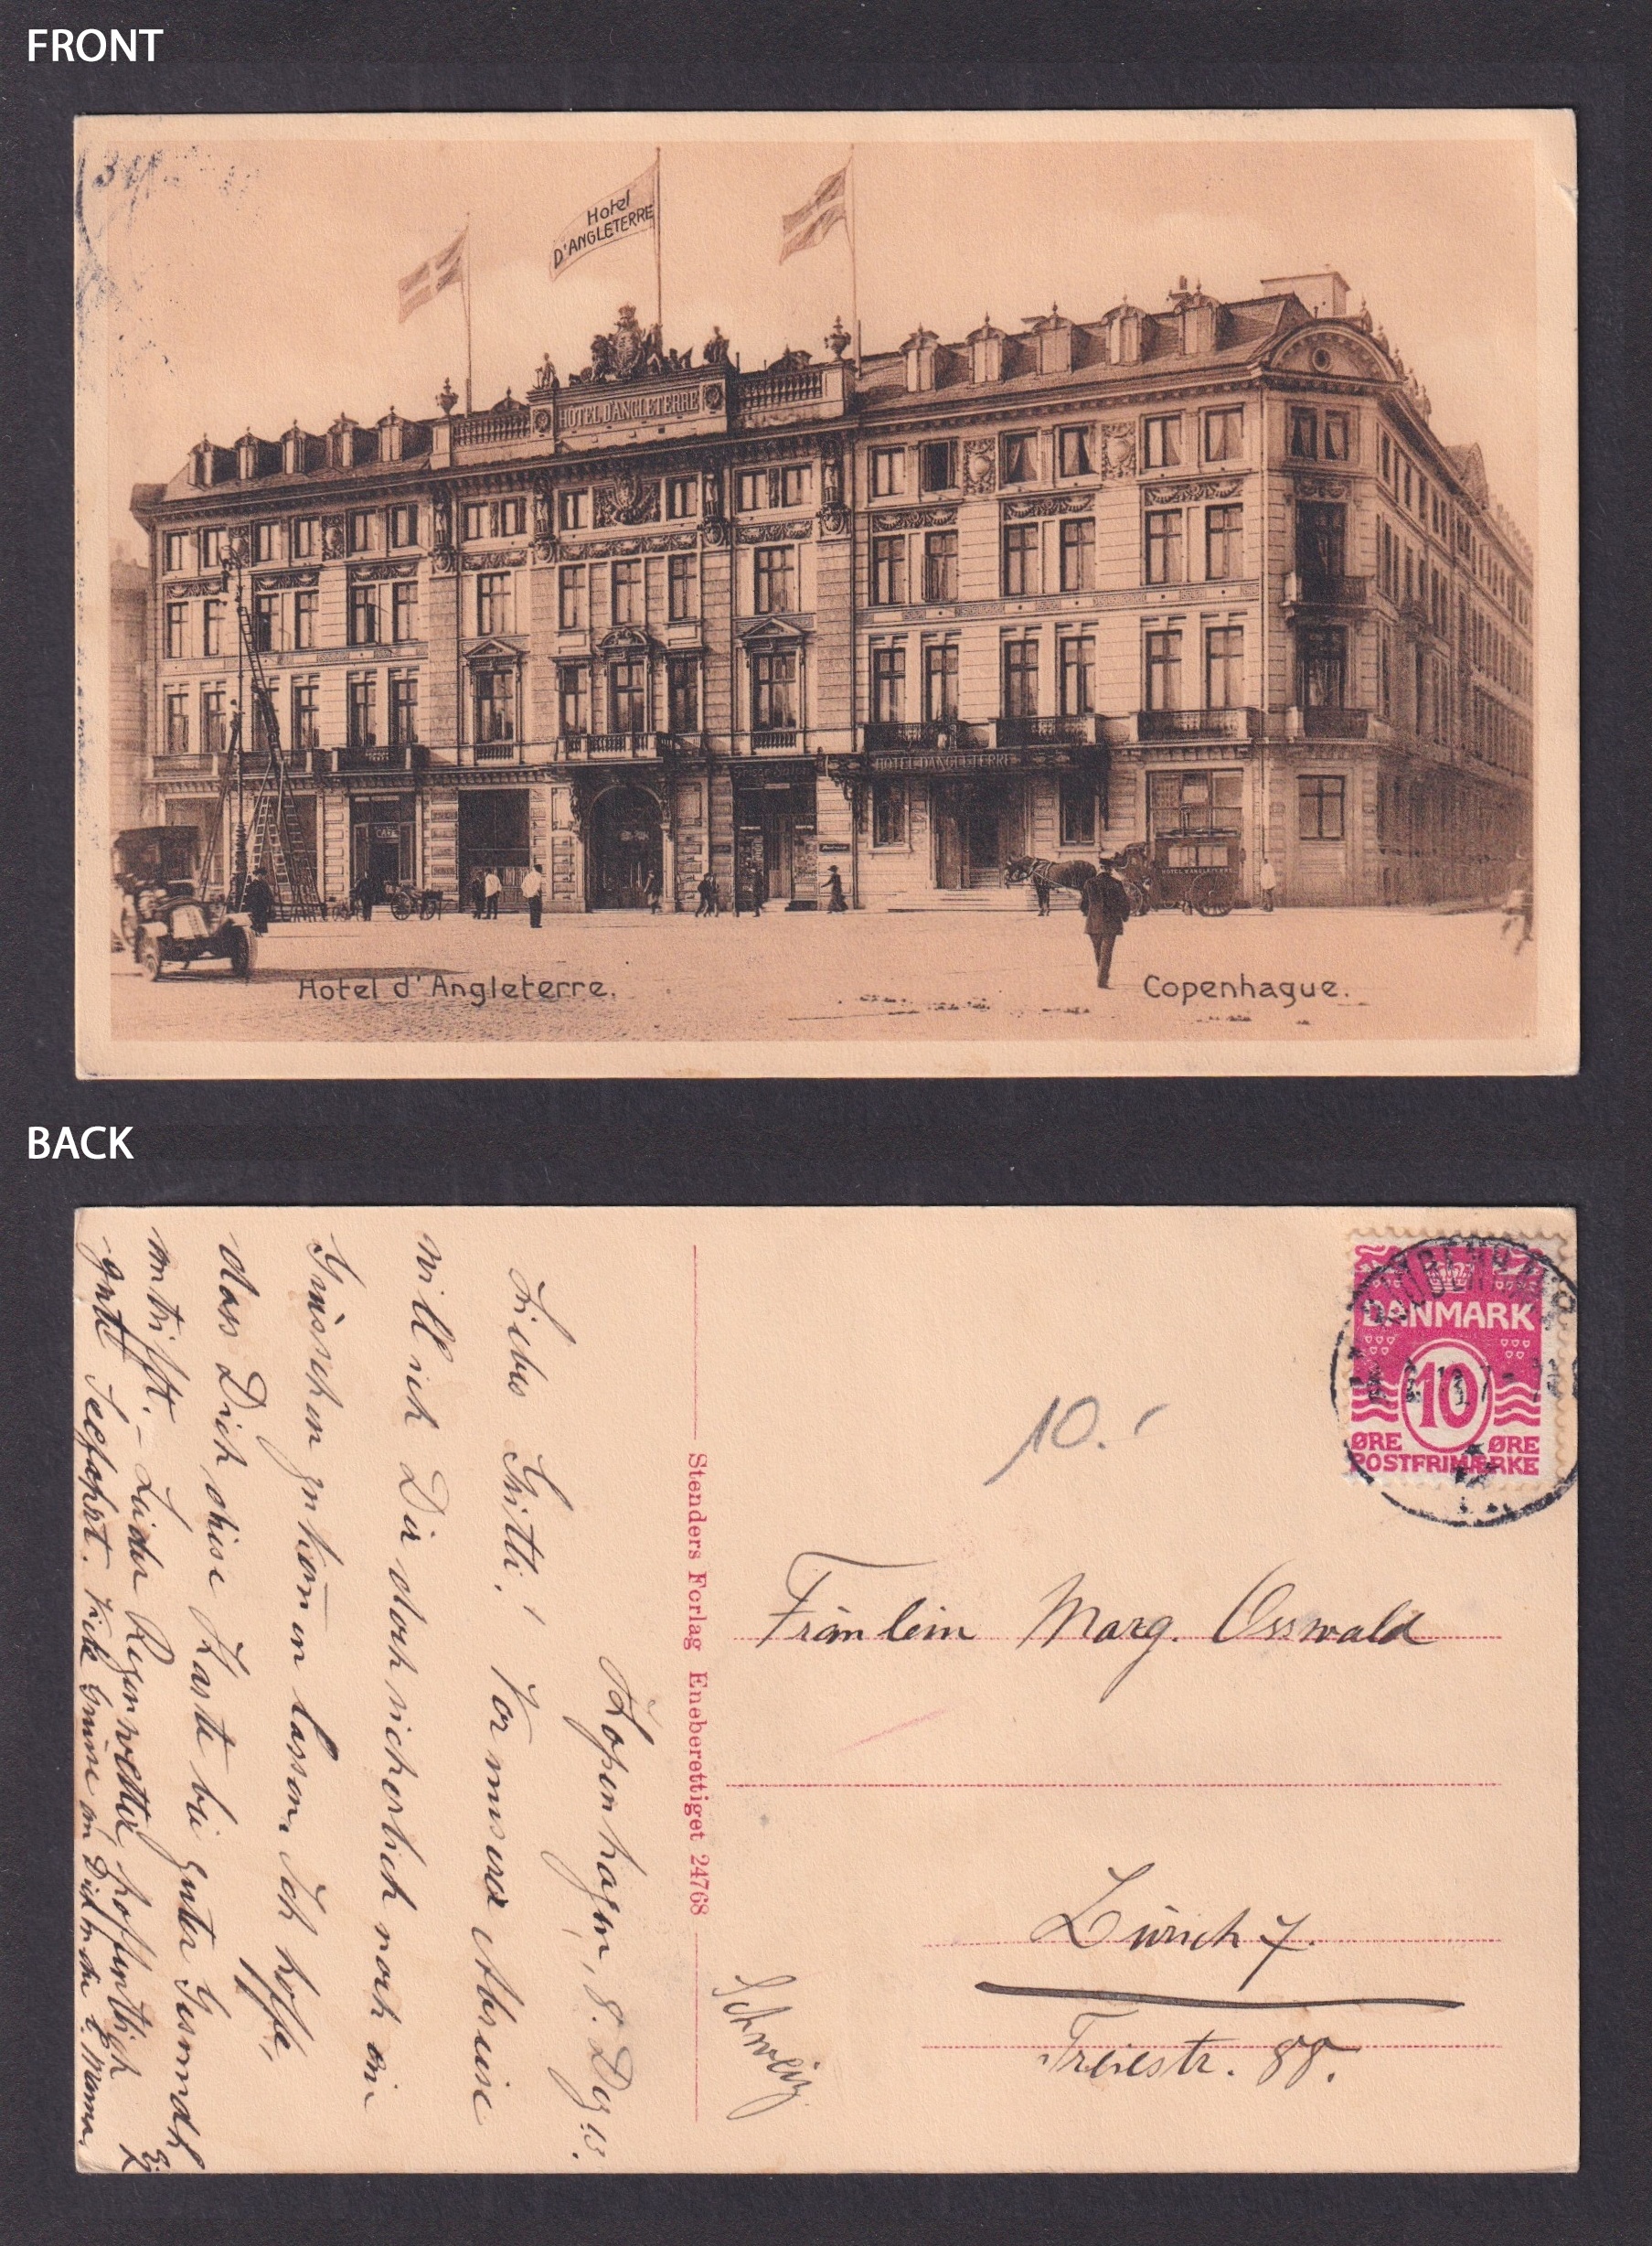 FRONT
Hotel
D'ANGLETERRE
HOTEL D'ANGLETERRE
CAFÉ
HOTEL D'ANGLETERRE
HOTEL D'ANGLETERRE
Hotel d'Angleterre.
Copenhague.
BACK
Kopenhagen, 8. Dez. 13.
Liebes Gritti! Vor unserer Abreise
will ich Dir doch sicherlich noch ein
Grüsschen zukom̄en lassen. Ich hoffe,
dass Dich diese Karte bei guter Gesundh.
antrifft. – Leider Regenwetter, hoffentlich
gute Seefahrt. Viele Grüsse an Dich u. Mama.
Stenders Forlag Eneberettiget 24768
DANMARK
10
ØRE ØRE
POSTFRIMÆRKE
10.-
Fräulein Marg. Osswald
Zürich 7.
Freiestr. 88.
Schweiz